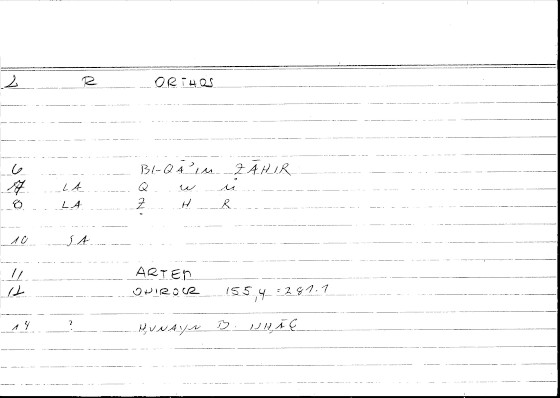 2 R ORTHOS
6 BI-QĀ'IM ẒĀHIR
7 LA Q W M
8 LA Ẓ H R
10 SA
11 ARTEM
12 ONIROCR 155,4 = 281.1
14 ? ḤUNAYN B. ISḤĀQ